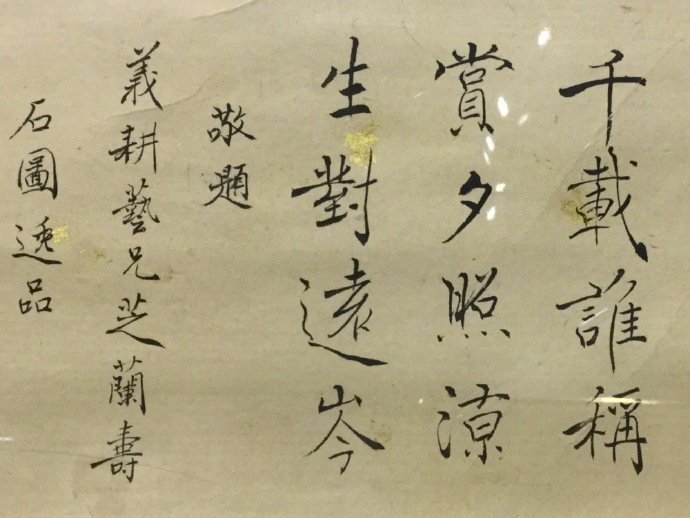 千載誰稱
賞夕照涼
生對遠岑
敬題
義耕藝兄芝蘭壽
石圖逸品